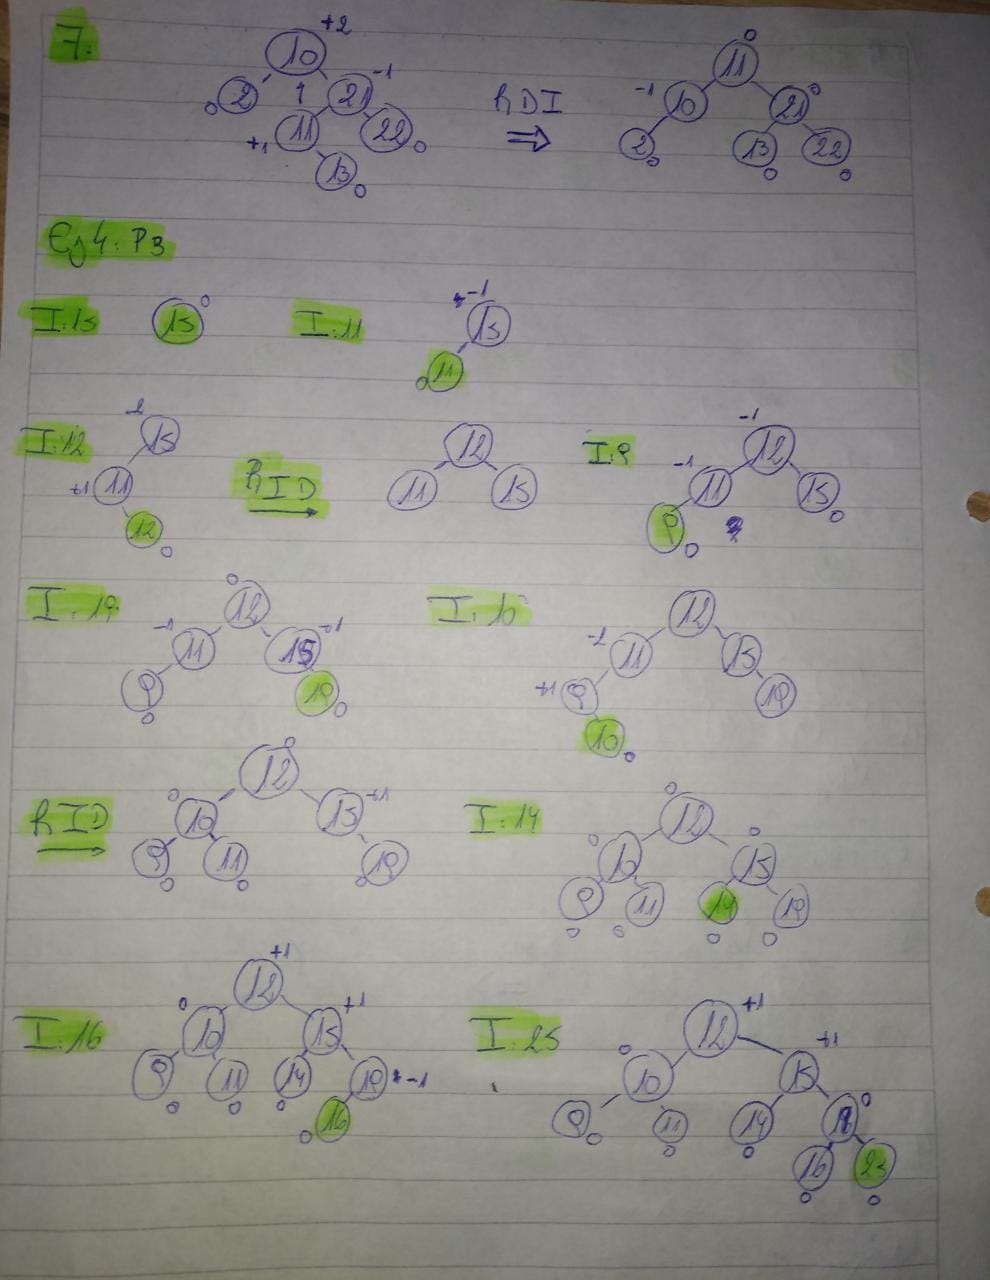 7.
+2
10
11
0
0 2 1 21 -1
RDI
-1 10 21 0
+1 11 22 0
2 0 13 0 22 0
13 0
Ej 4. P3
I.15 15 0 I.11 -1 15
0 11
I.12 -2 15
+1 11
12 0
RID
12
11 15
I.9 -1 12
-1 11 15 0
9 0
I.19 0 12
-1 11 15 +1
9 0 19 0
I.10 12
-2 11 15
+1 9 19
10 0
RID 12 0
0 10 15 +1
9 0 11 0 19 0
I.14 0 12
0 10 15 0
9 0 11 0 14 0 19 0
I.16 12 +1
0 10 15 +1
9 0 11 0 14 0 19 -1
0 16
I.25 12 +1
0 10 15 +1
9 0 11 0 14 0 0
16 0 0